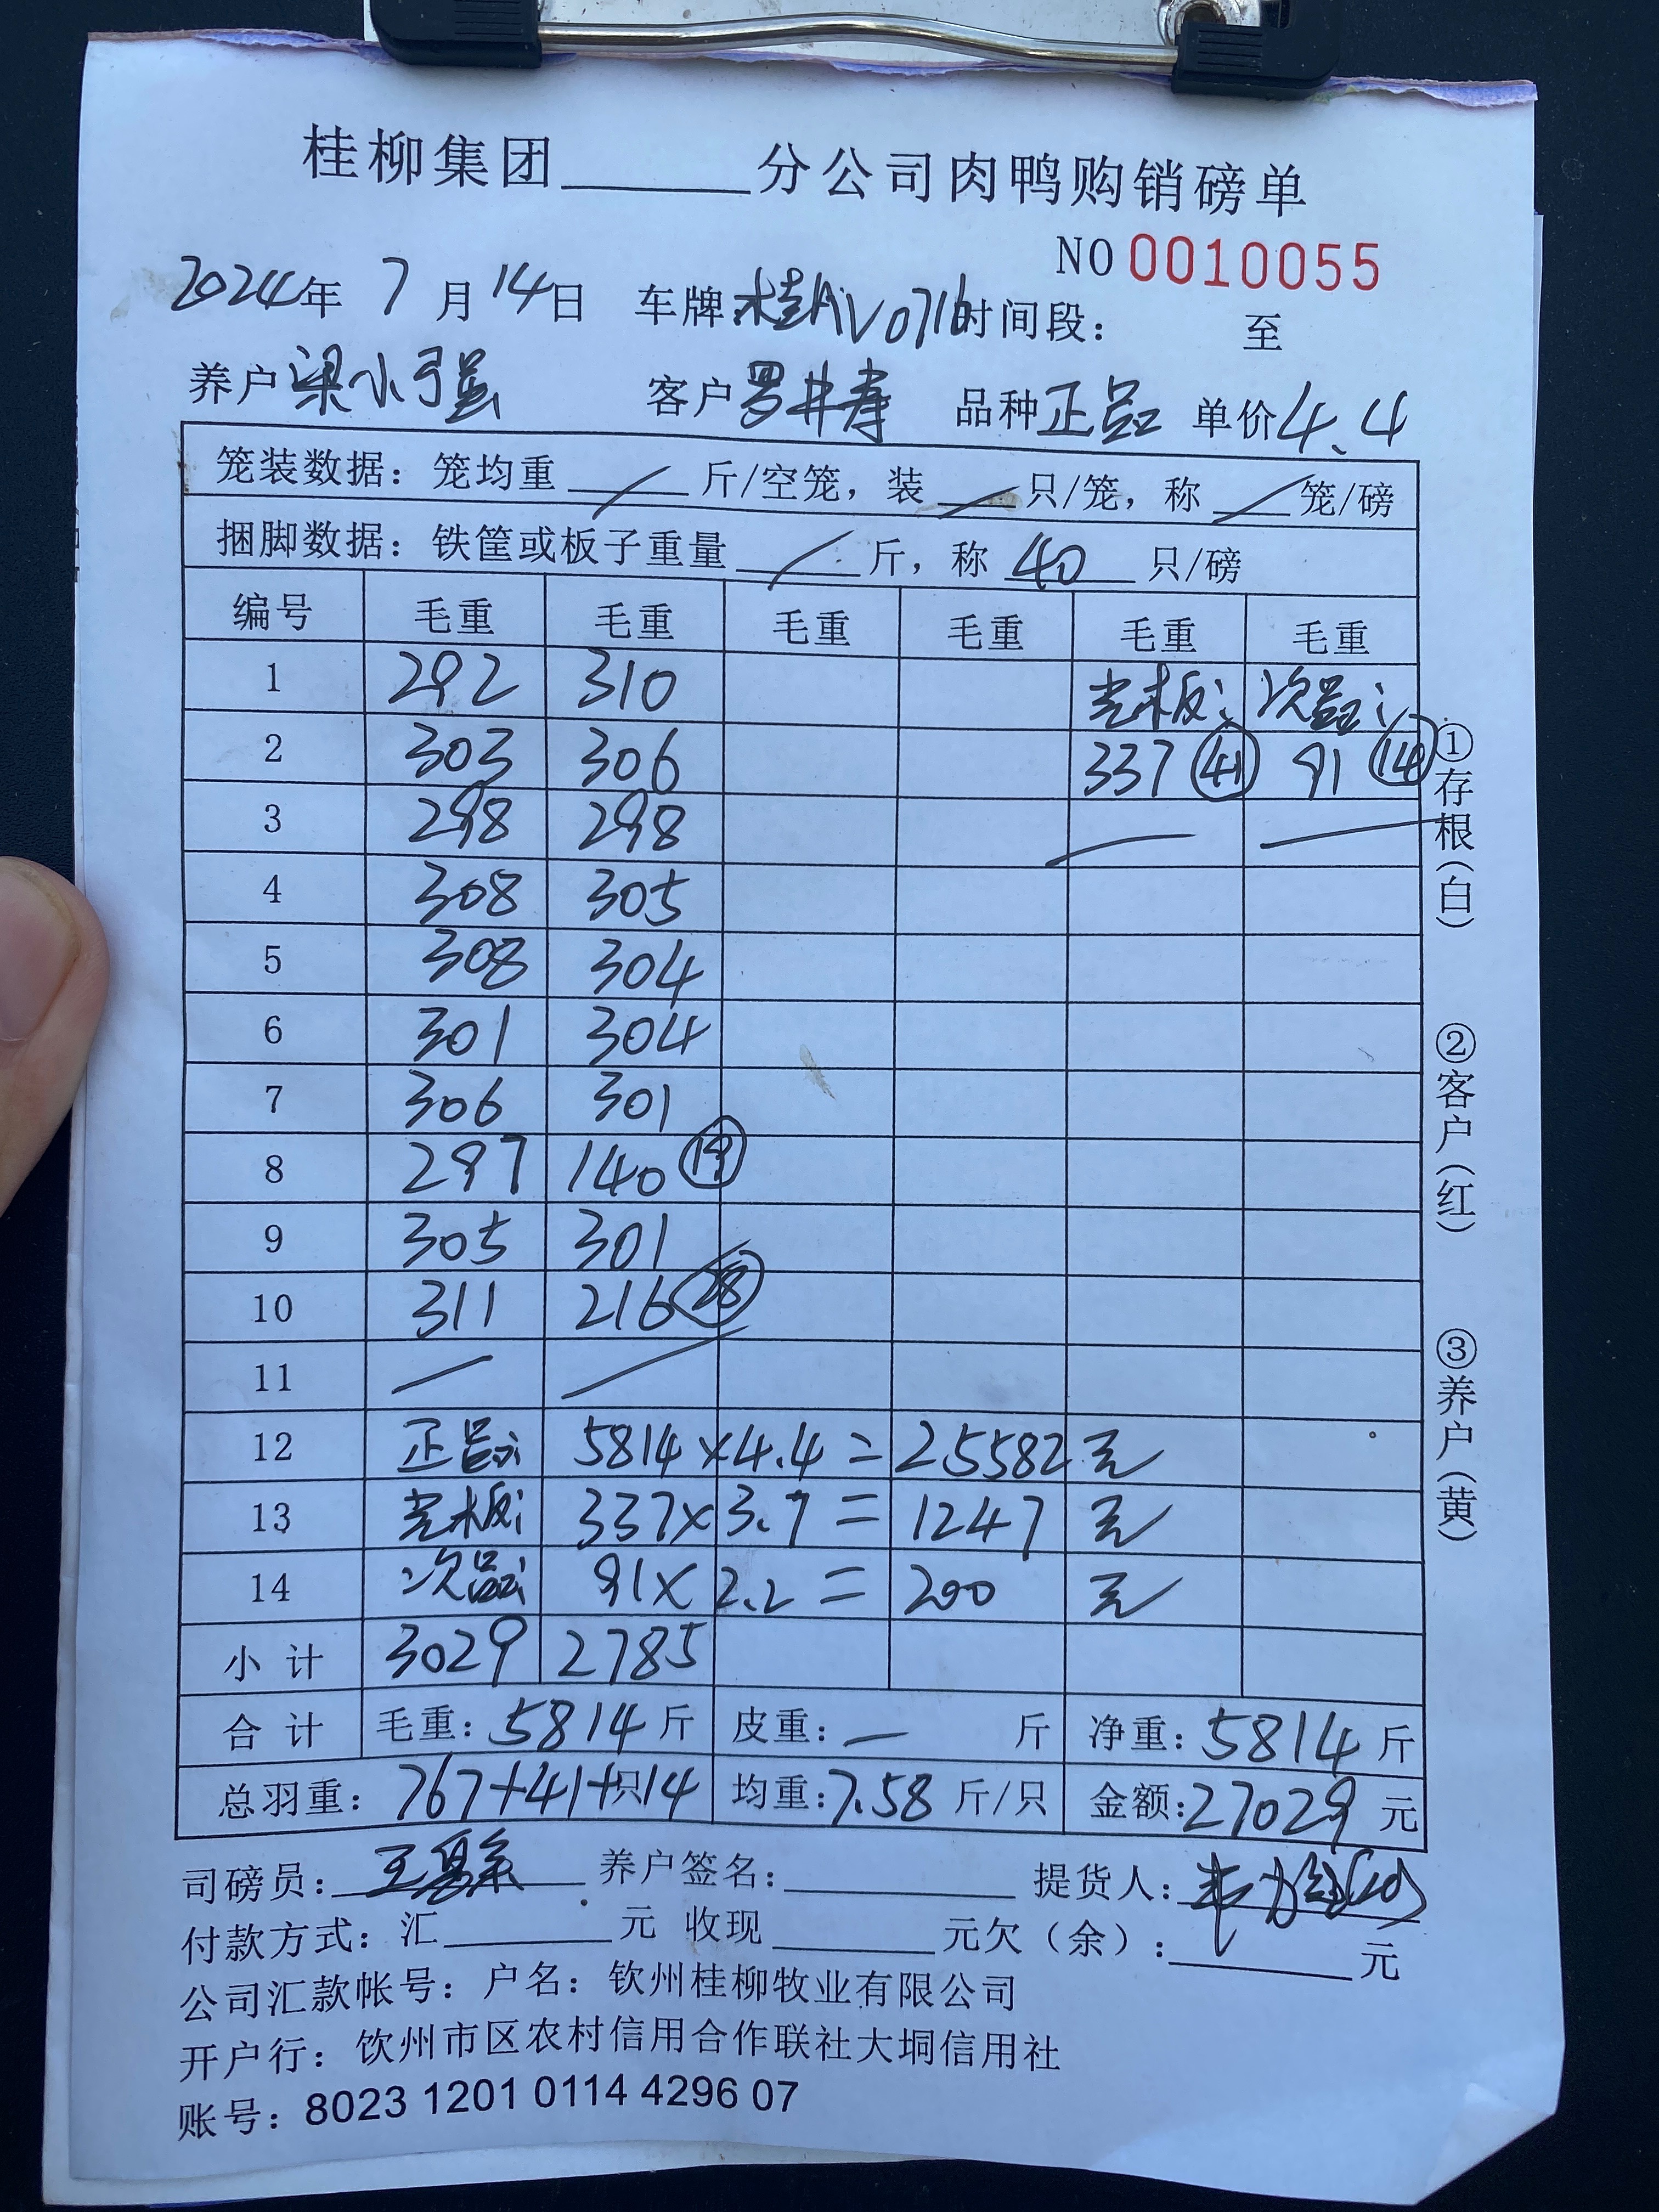 桂柳集团______分公司肉鸭购销磅单
NO 0010055
2024年 7 月 14日 车牌:桂AV0716时间段: 至
养户 梁小强 客户 罗井寿 品种 正品 单价 4.4
笼装数据: 笼均重 / 斤/空笼, 装 / 只/笼, 称 / 笼/磅
捆脚数据: 铁筐或板子重量 / 斤, 称 40 只/磅
编号 毛重 毛重 毛重 毛重 毛重 毛重
1 292 310 光板: 次品:
2 303 306 337 (41) 91 (14)
3 298 298 — —
4 308 305
5 308 304
6 301 304
7 306 301
8 297 140 (19)
9 305 301
10 311 216 (28)
11 — —
12 正品: 5814 ×4.4 = 25582 元
13 光板: 337× 3.7 = 1247 元
14 次品: 91× 2.2 = 200 元
小 计 3029 2785
合 计 毛重: 5814 斤 皮重: — 斤 净重: 5814 斤
总羽重: 767+41+14 只 均重: 7.58 斤/只 金额: 27029 元
司磅员: 养户签名: 提货人:
付款方式: 汇______元 收现______元欠(余):______元
公司汇款帐号: 户名: 钦州桂柳牧业有限公司
开户行: 钦州市区农村信用合作联社大垌信用社
账号: 8023 1201 0114 4296 07
①存根(白) ②客户(红) ③养户(黄)